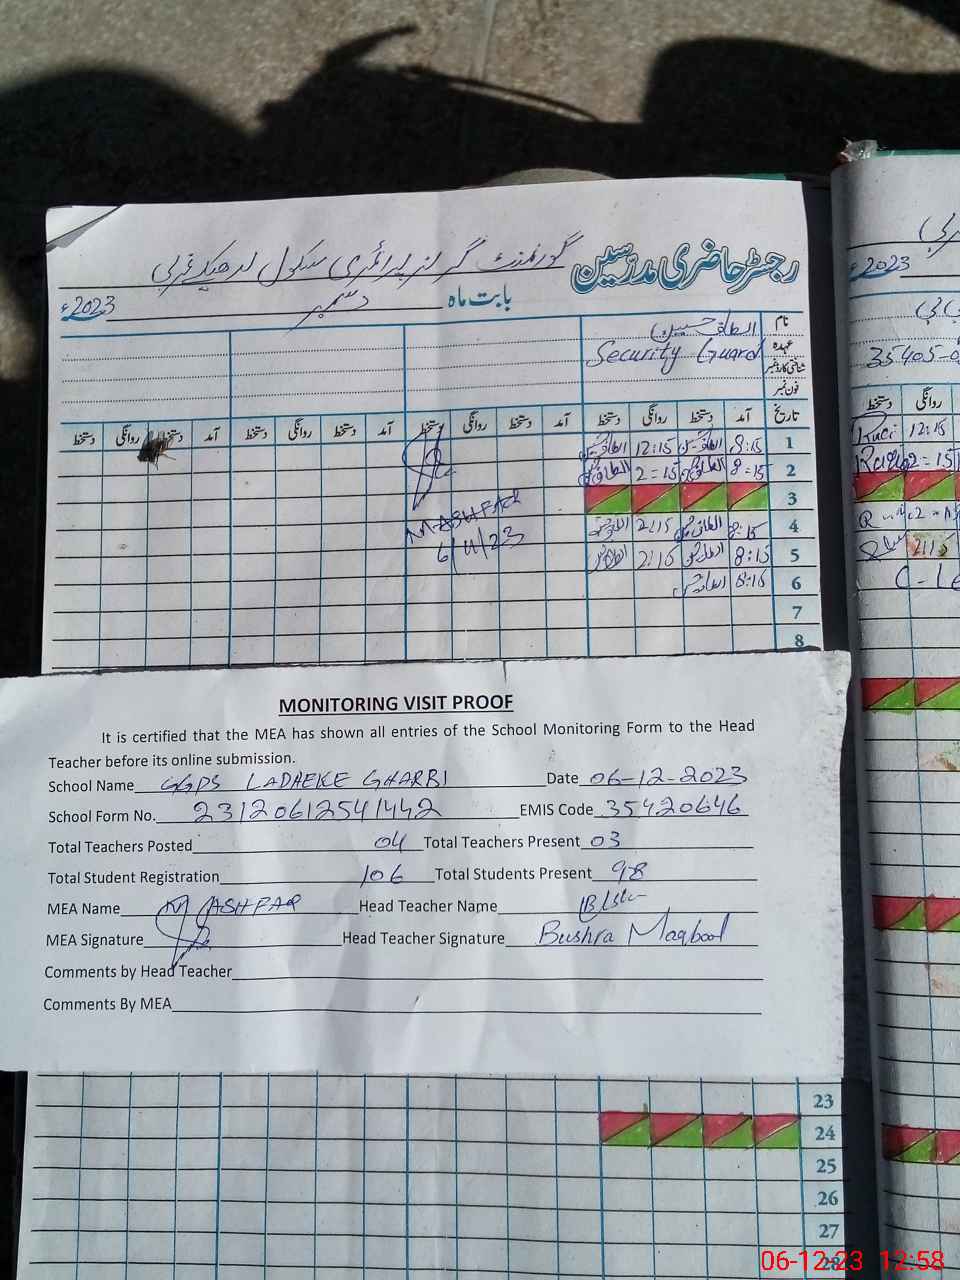 رجسٹر حاضری مدرسین گورنمنٹ گرلز پرائمری سکول لدھیکے غربی
بابت ماہ دسمبر 2023ء
نام الطاف حسین
عہدہ Security Guard
شناختی کارڈ نمبر
فون نمبر
تاریخ آمد دستخط روانگی دستخط آمد دستخط روانگی دستخط آمد دستخط روانگی دستخط آمد دستخط روانگی دستخط
1 8:15 12:15
2 8=15 2=15
3
4 8:15 2:15
M ASHFAQ
5 8:15 2:15
6/11/23
6 8:15
7
8
2023ء
35405-0
روانگی دستخط
12:15
2=15
2:15
C-Le
MONITORING VISIT PROOF
It is certified that the MEA has shown all entries of the School Monitoring Form to the Head
Teacher before its online submission.
School Name GGPS LADHEKE GHARBI Date 06-12-2023
School Form No. 23120612541442 EMIS Code 35420646
Total Teachers Posted 04 Total Teachers Present 03
Total Student Registration 106 Total Students Present 98
MEA Name M ASHFAQ Head Teacher Name
MEA Signature Head Teacher Signature Bushra Maqbool
Comments by Head Teacher
Comments By MEA
23
24
25
26
27
28
06-12-23 12:58